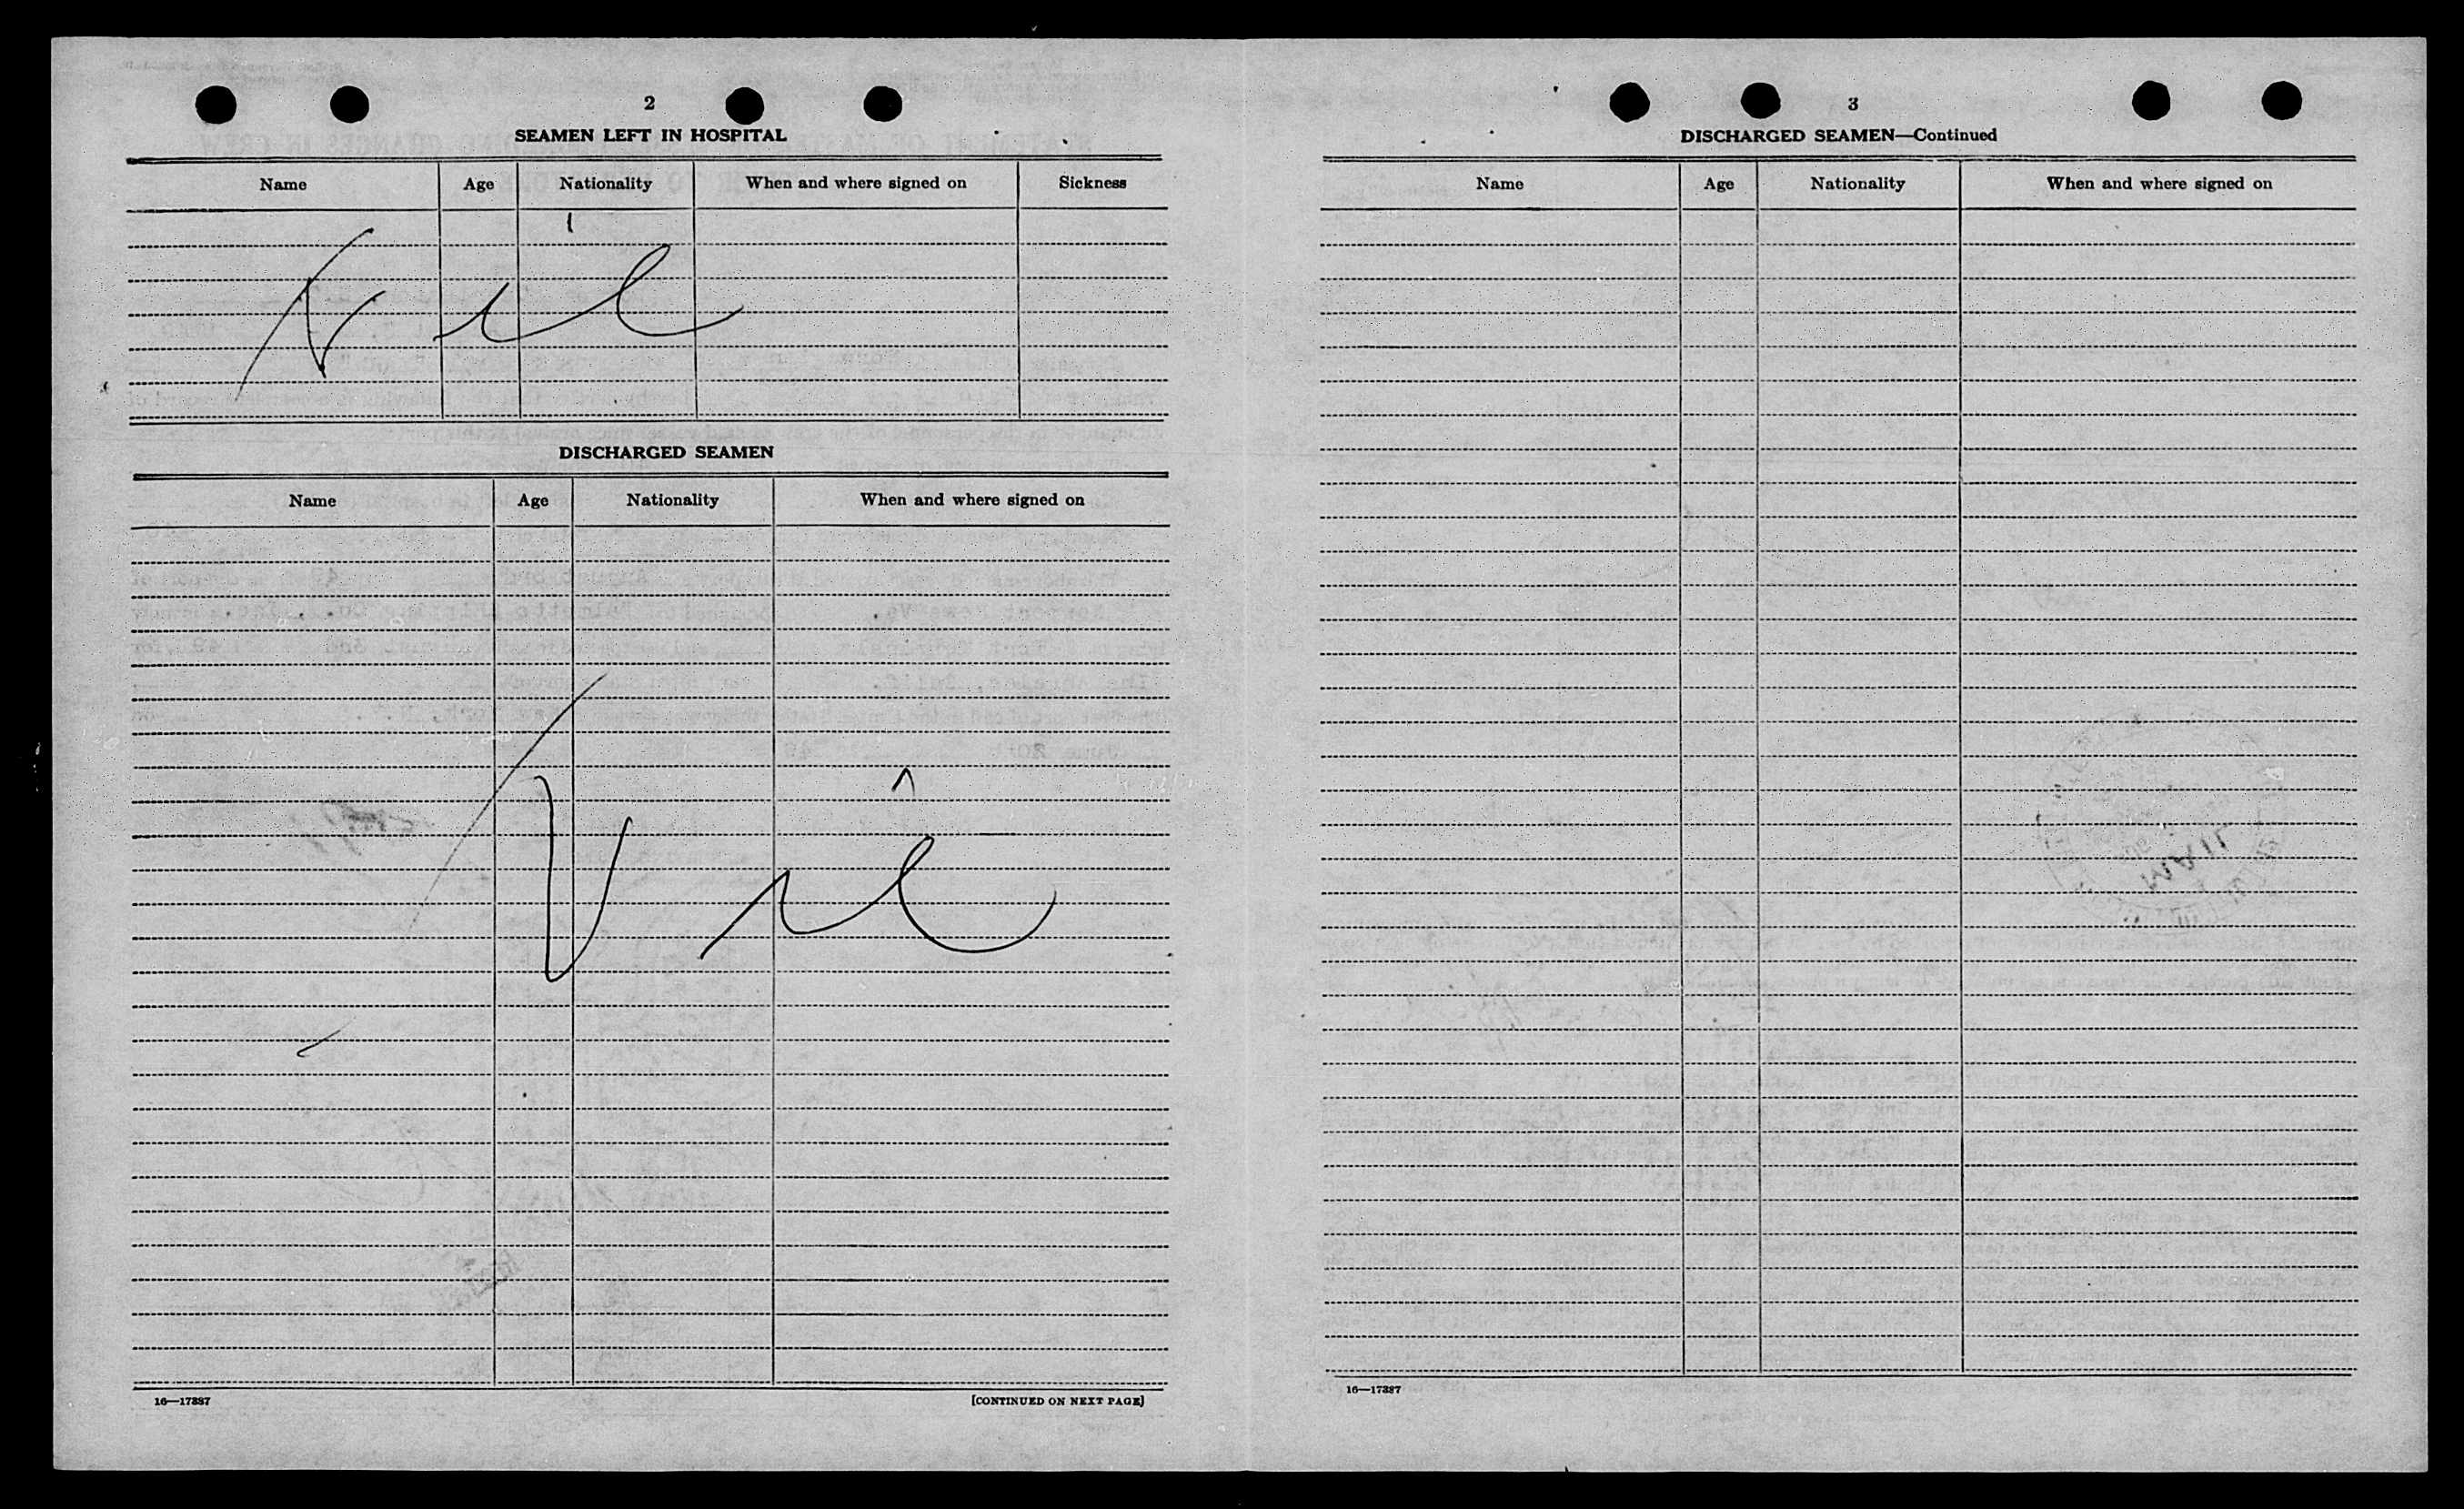 2
SEAMEN LEFT IN HOSPITAL
Name Age Nationality When and where signed on Sickness
Nil
DISCHARGED SEAMEN
Name Age Nationality When and where signed on
Nil
16—17387
[CONTINUED ON NEXT PAGE]
3
DISCHARGED SEAMEN—Continued
Name Age Nationality When and where signed on
16—17387